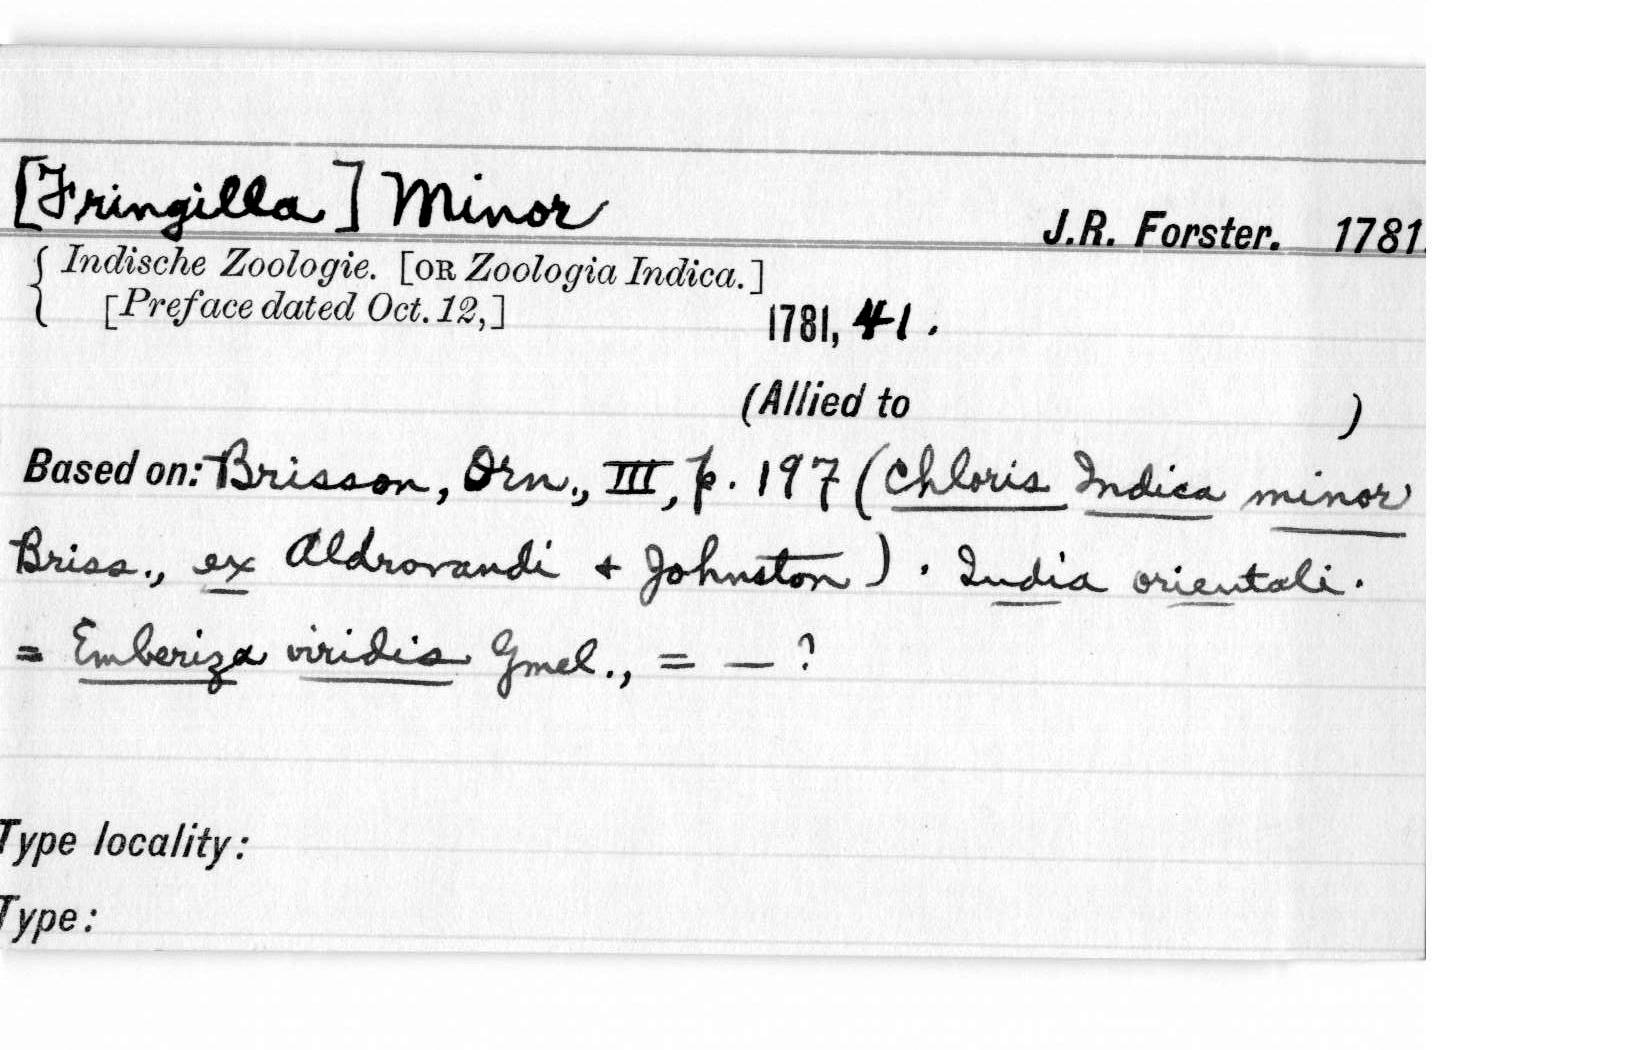 [Fringilla] Minor J.R. Forster. 1781.
{ Indische Zoologie. [OR Zoologia Indica.]
[Preface dated Oct. 12,]
1781, 41.
(Allied to )
Based on: Brisson, Orn., III, p. 197 (Chloris Indica minor
Briss., ex Aldrovandi + Johnston). India orientali.
= Emberiza viridis Gmel., = — ?
Type locality:
Type: